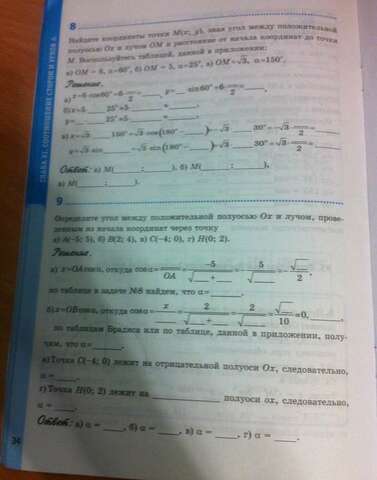 ГЛАВА XI. СООТНОШЕНИЕ СТОРОН И УГЛОВ Δ
8
Найдите координаты точки M(x; y), зная угол между положительной
полуосью Ox и лучом OM и расстояние от начала координат до точки
M. Воспользуйтесь таблицей, данной в приложении:
а) OM = 6, α=60°, б) OM = 5, α=25°, в) OM=√3, α=150°.
Решение.
а) x=6·cos60°=6·—/2=____, y=____ sin60°=6·—/2=____
б) x=5____25°≈5____=____,
y=____25°≈5____=____.
в) x=√3____150°=√3·cos(180°−____)=−√3____30°=−√3·—/2=____
y=√3·sin____=√3·sin(180°−____)=√3____30°=√3·—/2=____.
Ответ: а) M(____;____), б) M(____;____),
в) M(____;____).
9
Определите угол между положительной полуосью Ox и лучом, прове-
денным из начала координат через точку
а) A(−5; 5), б) B(2; 4), в) C(−4; 0), г) H(0; 2).
Решение.
а) x=OA·cosα, откуда cosα=____/OA=−5/√(__+__)=−5/√__=−√__/2,
по таблице в задаче №8 найдем, что α=____.
б) x=OB·cosα, откуда cosα=x/____=2/√(__+__)=2/√__=√__/10≈0,____,
по таблицам Брадиса или по таблице, данной в приложении, полу-
чим, что α=____.
в) Точка C(−4; 0) лежит на отрицательной полуоси Ox, следовательно,
α = ____.
г) Точка H(0; 2) лежит на ____ полуоси ox, следовательно,
α = ____.
Ответ: а) α = ____, б) α = ____, в) α = ____, г) α = ____.
34